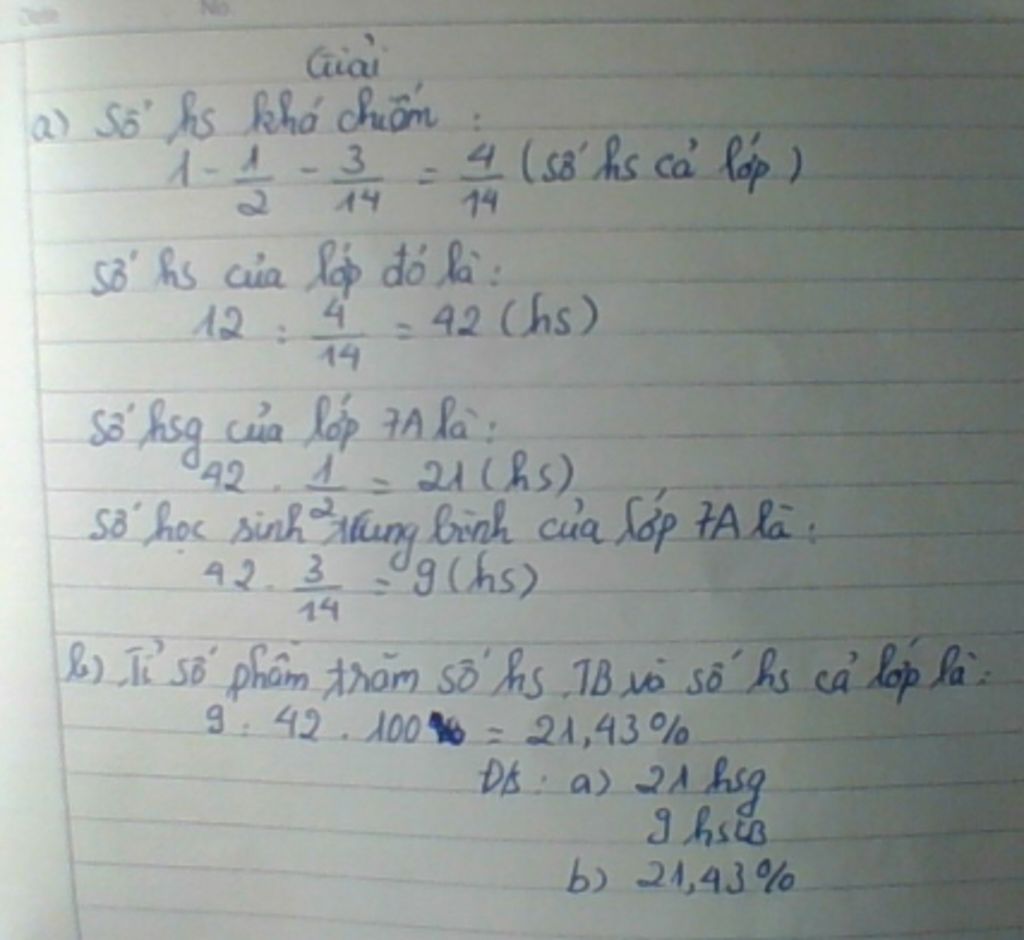 Giải
a) Số hs khá chiếm :
1 - 1/2 - 3/14 = 4/14 (số hs cả lớp)
số hs của lớp đó là:
12 : 4/14 = 42 (hs)
số hsg của lớp 7A là:
42 . 1/2 = 21 (hs)
số học sinh trung bình của lớp 7A là:
42 . 3/14 = 9 (hs)
b) Tỉ số phần trăm số hs TB và số hs cả lớp là:
9 : 42 . 100 = 21,43%
ĐS : a) 21 hsg
9 hsTB
b) 21,43%